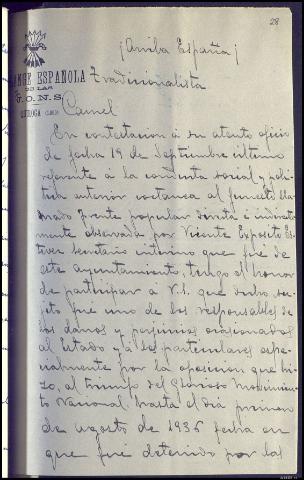 28
¡Arriba España!
FALANGE ESPAÑOLA
Tradicionalista
DE LAS
J.O.N.S.
QUIROGA (LUGO)
En contestacion á su atento oficio
de fecha 19 de Septiembre ultimo
referente á la conducta social y poli
tica anterior al funesto lla
mado Frente popular directa é indirecta
mente observada por Vicente Expósito Es
tevez Secretario interino que fué de
este ayuntamiento, tengo el honor
de participar á V.S. que dicho su-
jeto fue uno de los responsables de
los daños y perjuicios ocasionados
al Estado y á los particulares espe-
cialmente por la oposicion que hi-
zo, al triunfo del Glorioso Movimien-
to Nacional. Hasta el dia primero
de agosto de 1936 fecha en
que fué detenido por las